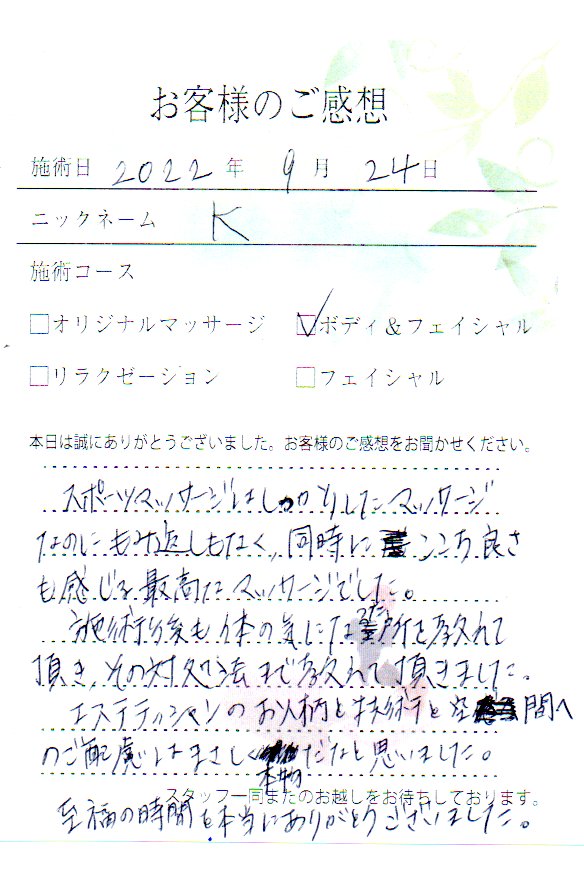 お客様のご感想
施術日 2022年 9月 24日
ニックネーム K
施術コース
□オリジナルマッサージ ☑ボディ&フェイシャル
□リラクゼーション □フェイシャル
本日は誠にありがとうございました。お客様のご感想をお聞かせください。
スポーツマッサージはしっかりしたマッサージ
なのにもみ返しもなく、同時にここち良さ
も感じる最高なマッサージでした。
施術後も体の気になった所を教えて
頂き、その対処法まで教えて頂きました。
エステティシャンのお人柄と技術と空間へ
のご配慮はまさしく本物だなと思いました。
スタッフ一同またのお越しをお待ちしております。
至福の時間を本当にありがとうございました。